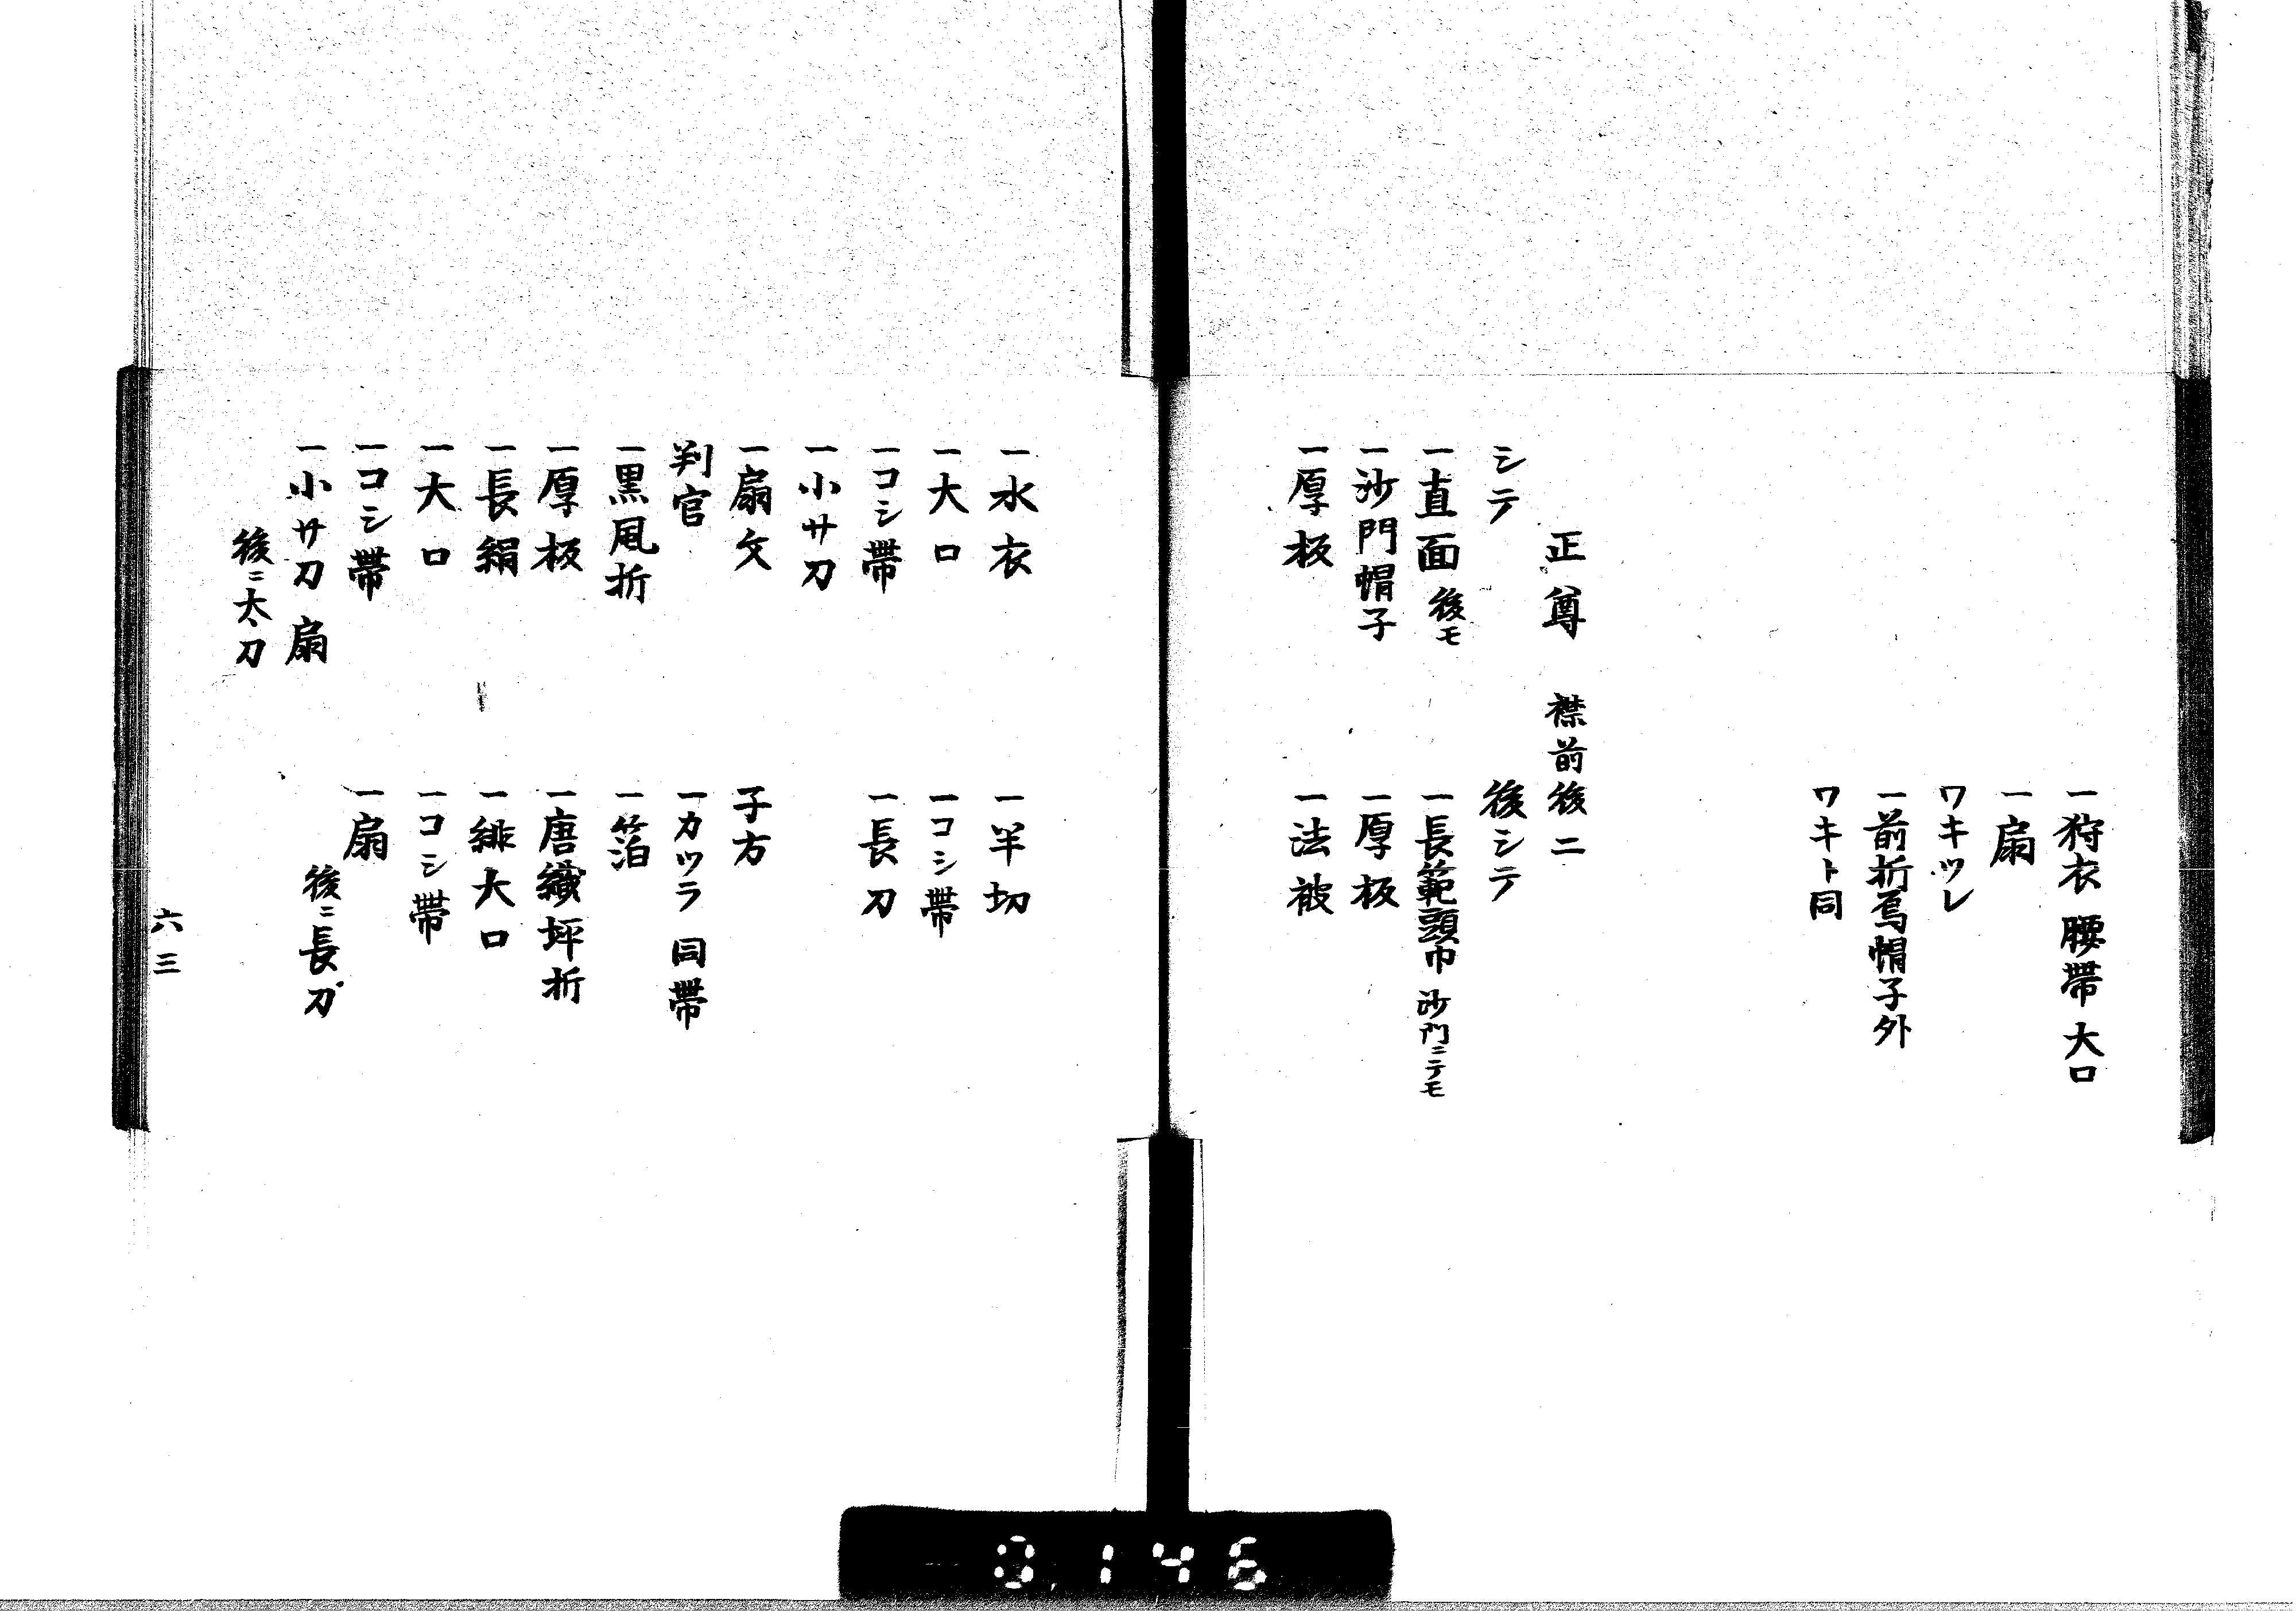 一狩衣 腰帯 大口
一扇
ワキツレ
一前折烏帽子外
ワキト同
正尊 襟前後二
シテ
後シテ
一直面 後モ
一長範頭巾 沙門ニテモ
一沙門帽子
一厚板
一厚板
一法被
一水衣
一半切
一大口
一コシ帯
一コシ帯
一長刀
一小サ刀
一扇文
子方
判官
一カツラ 同帯
一黒風折
一箔
一厚板
一唐織坪折
一長絹
一緋大口
一大口
一コシ帯
一コシ帯
一扇
一小サ刀 扇
後ニ長刀
後ニ太刀
六三
0146